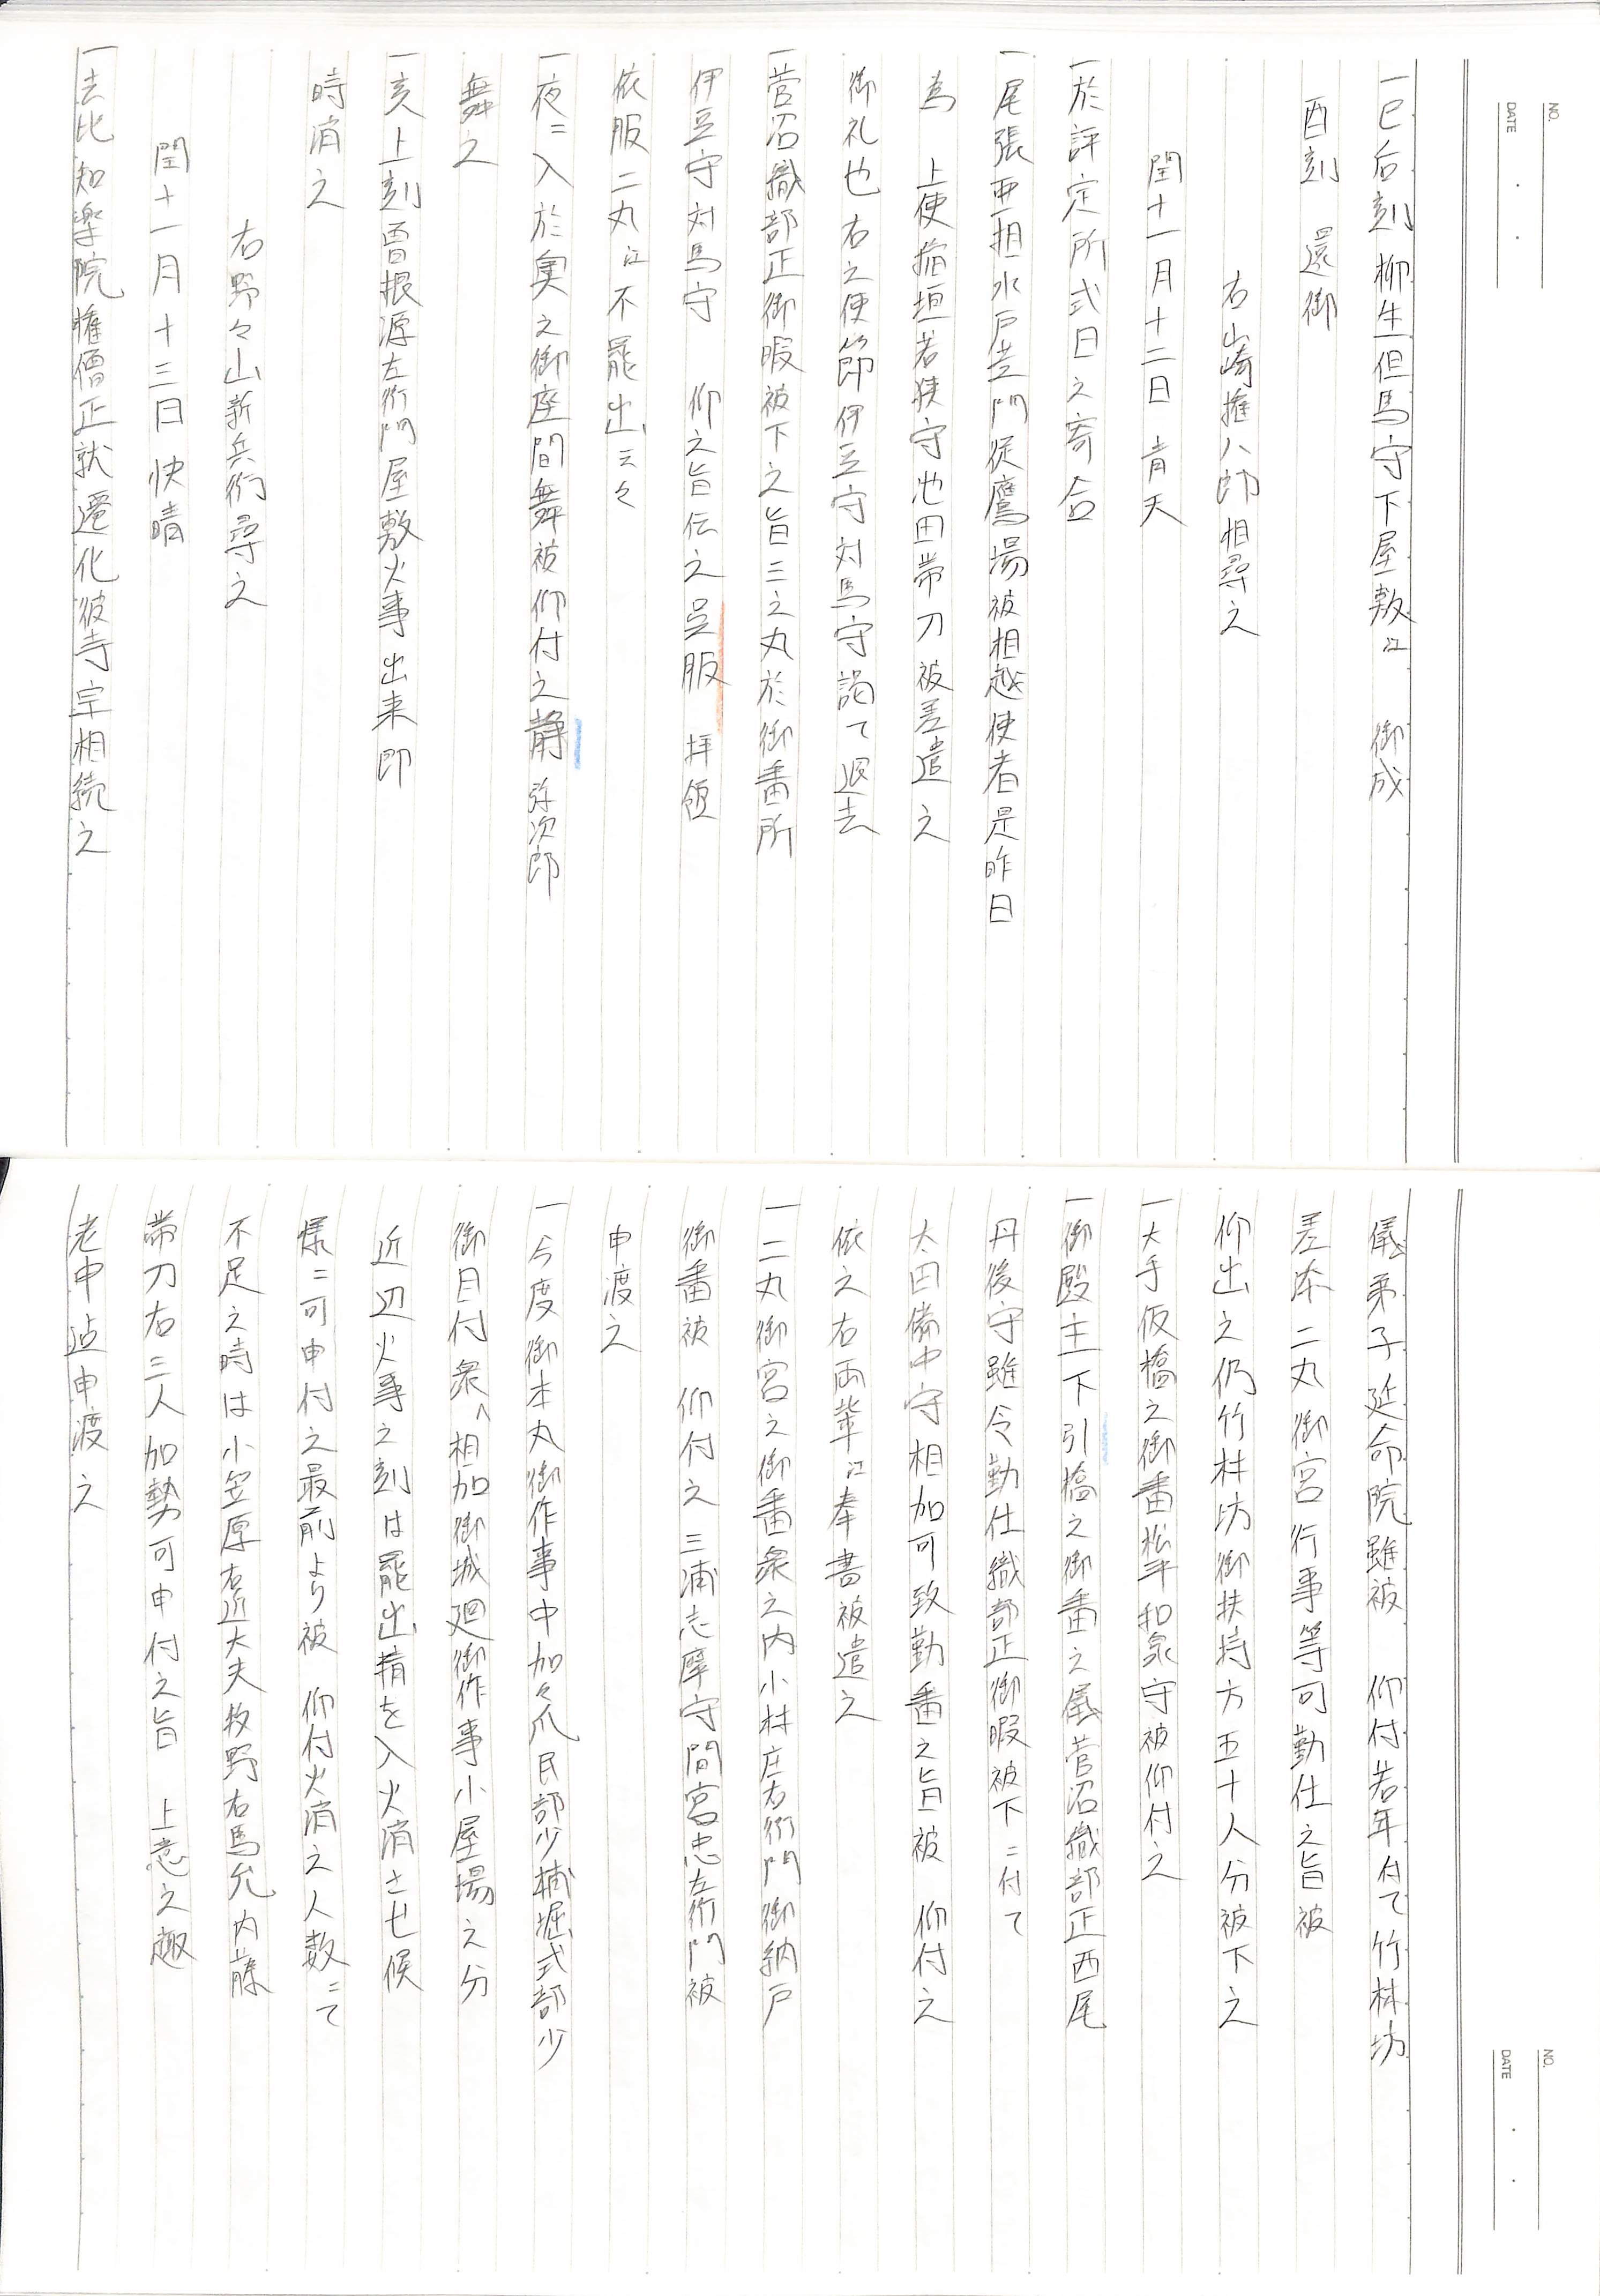 NO.
DATE
一巳后刻柳生但馬守下屋敷江 御成
酉刻 還御
右山崎権八郎相尋之
閏十一月十二日 青天
一於評定所式日之寄合
一尾張亜相水戸黄門従鷹場被相越使者是昨日
為 上使稲垣若狭守池田帯刀被差遣之
御礼也右之使節伊豆守対馬守謁て退去
一菅沼織部正御暇被下之旨三之丸於御番所
伊豆守対馬守 仰之旨伝之呉服 拝領
依服二丸江不罷出云々
一夜ニ入於奥之御座間舞被仰付之静 弥次郎
舞之
一亥上刻曽根源左衛門屋敷火事出来即
時消之
右野々山新兵衛尋之
閏十一月十三日 快晴
一去比知楽院権僧正就遷化彼寺宗相続之
NO.
DATE
儀弟子延命院雖被 仰付若年付て竹林坊
差添二丸御宮行事等可勤仕之旨被
仰出之仍竹林坊御扶持方五十人分被下之
一大手仮橋之御番松平和泉守被仰付之
一御殿主下引橋之御番之儀菅沼織部正西尾
丹後守雖令勤仕織部正御暇被下ニ付て
太田備中守相加可致勤番之旨被 仰付之
依之右両輩江奉書被遣之
一二丸御宮之御番衆之内小林庄右衛門御納戸
御番被 仰付之三浦志摩守間宮忠左衛門被
申渡之
一今度御本丸御作事中加々爪民部少輔堀式部少
御目付衆へ相加御城廻御作事小屋場之分
近辺火事之刻は罷出精を入火消させ候
様ニ可申付之最前より被 仰付火消之人数ニて
不足之時は小笠原右近大夫牧野右馬允内藤
帯刀右三人加勢可申付之旨 上意之趣
老中迠申渡之